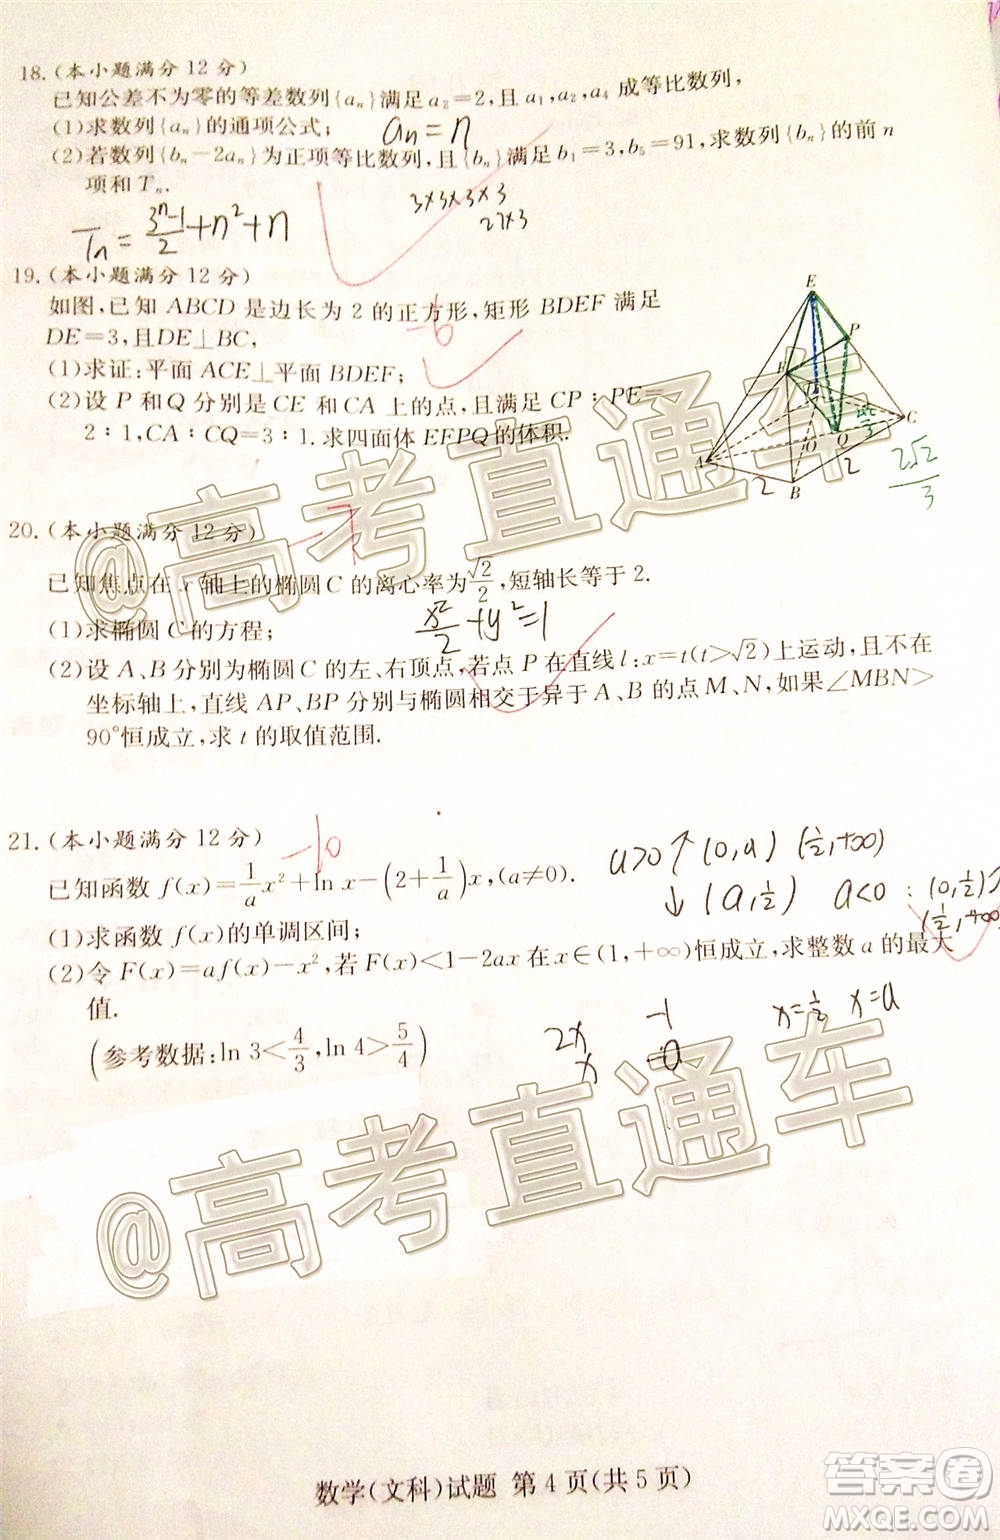 18.(本小题满分12分)
已知公差不为零的等差数列{aₙ}满足a₂=2,且a₁,a₂,a₄成等比数列,
(1)求数列{aₙ}的通项公式;
aₙ=n
(2)若数列{bₙ-2aₙ}为正项等比数列,且{bₙ}满足b₁=3,b₅=91,求数列{bₙ}的前n
项和Tₙ.
3×3×3×3
27×3
Tₙ=(3ⁿ-1)/2+n²+n
19.(本小题满分12分)
如图,已知ABCD是边长为2的正方形,矩形BDEF满足
DE=3,且DE⊥BC,
-6
(1)求证:平面ACE⊥平面BDEF;
(2)设P和Q分别是CE和CA上的点,且满足CP∶PE=
2∶1,CA∶CQ=3∶1.求四面体EFPQ的体积.
E
P
C
Q
O
A
B
2
2
2√2/3
20.(本小题满分12分)
已知焦点在x轴上的椭圆C的离心率为√2/2,短轴长等于2.
(1)求椭圆C的方程;
x²/2+y²=1
(2)设A、B分别为椭圆C的左、右顶点,若点P在直线l:x=t(t>√2)上运动,且不在
坐标轴上,直线AP、BP分别与椭圆相交于异于A、B的点M、N,如果∠MBN>
90°恒成立,求t的取值范围.
21.(本小题满分12分)
-10
已知函数f(x)=1/a x²+ln x-(2+1/a)x,(a≠0).
a>0↑(0,a)(½,+∞)
↓(a,½)
a<0:(0,½)↗
(½,+∞)
(1)求函数f(x)的单调区间;
(2)令F(x)=af(x)-x²,若F(x)<1-2ax在x∈(1,+∞)恒成立,求整数a的最大
值.
(参考数据:ln 3<4/3,ln 4>5/4)
2x -1
x -a
x=½ x=a
@高考直通车
@高考直通车
数学(文科)试题 第4页(共5页)
答案卷
MXQE.COM